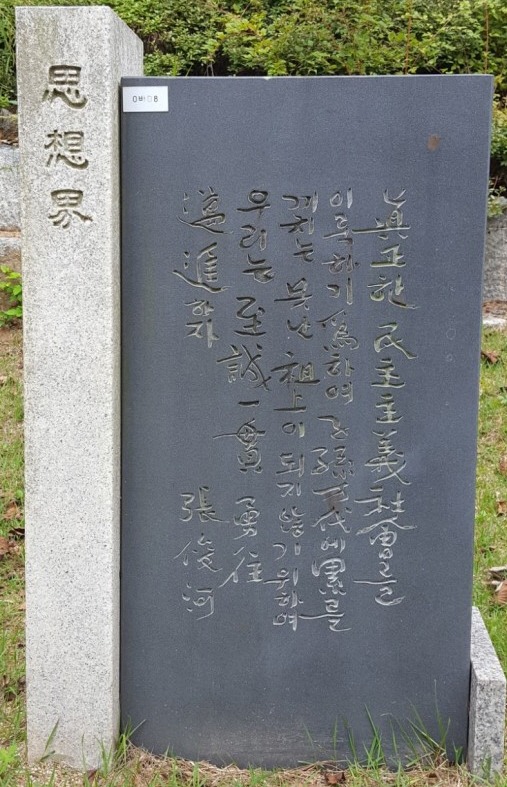 思想界
0바08
眞正한 民主主義社會를
이룩하기 爲하여 子孫萬代에 累를
끼치는 못난 祖上이 되지 않기 위하여
우리는 至誠一貫 勇往
邁進하자 張俊河